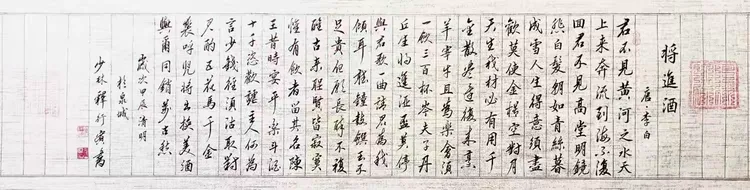 将進酒
唐李白
君不見黃河之水天
上来奔流到海不復
回君不見高堂明鏡
悲白髮朝如青絲暮
成雪人生得意須盡
歡莫使金樽空對月
天生我材必有用千
金散盡還復来烹
羊宰牛且為樂會須
一飲三百杯岑夫子丹
丘生将進酒盃莫停
與君歌一曲請君為我
傾耳聽鐘鼓饌玉不
足貴但願長醉不復
醒古来聖賢皆寂寞
惟有飲者留其名陳
王昔時宴平樂斗酒
十千恣歡謔主人何為
言少錢徑須沽取對
君酌五花馬千金
裘呼兒将出換美酒
與爾同銷萬古愁
歲次甲辰清明
於泉城
少林釋行書